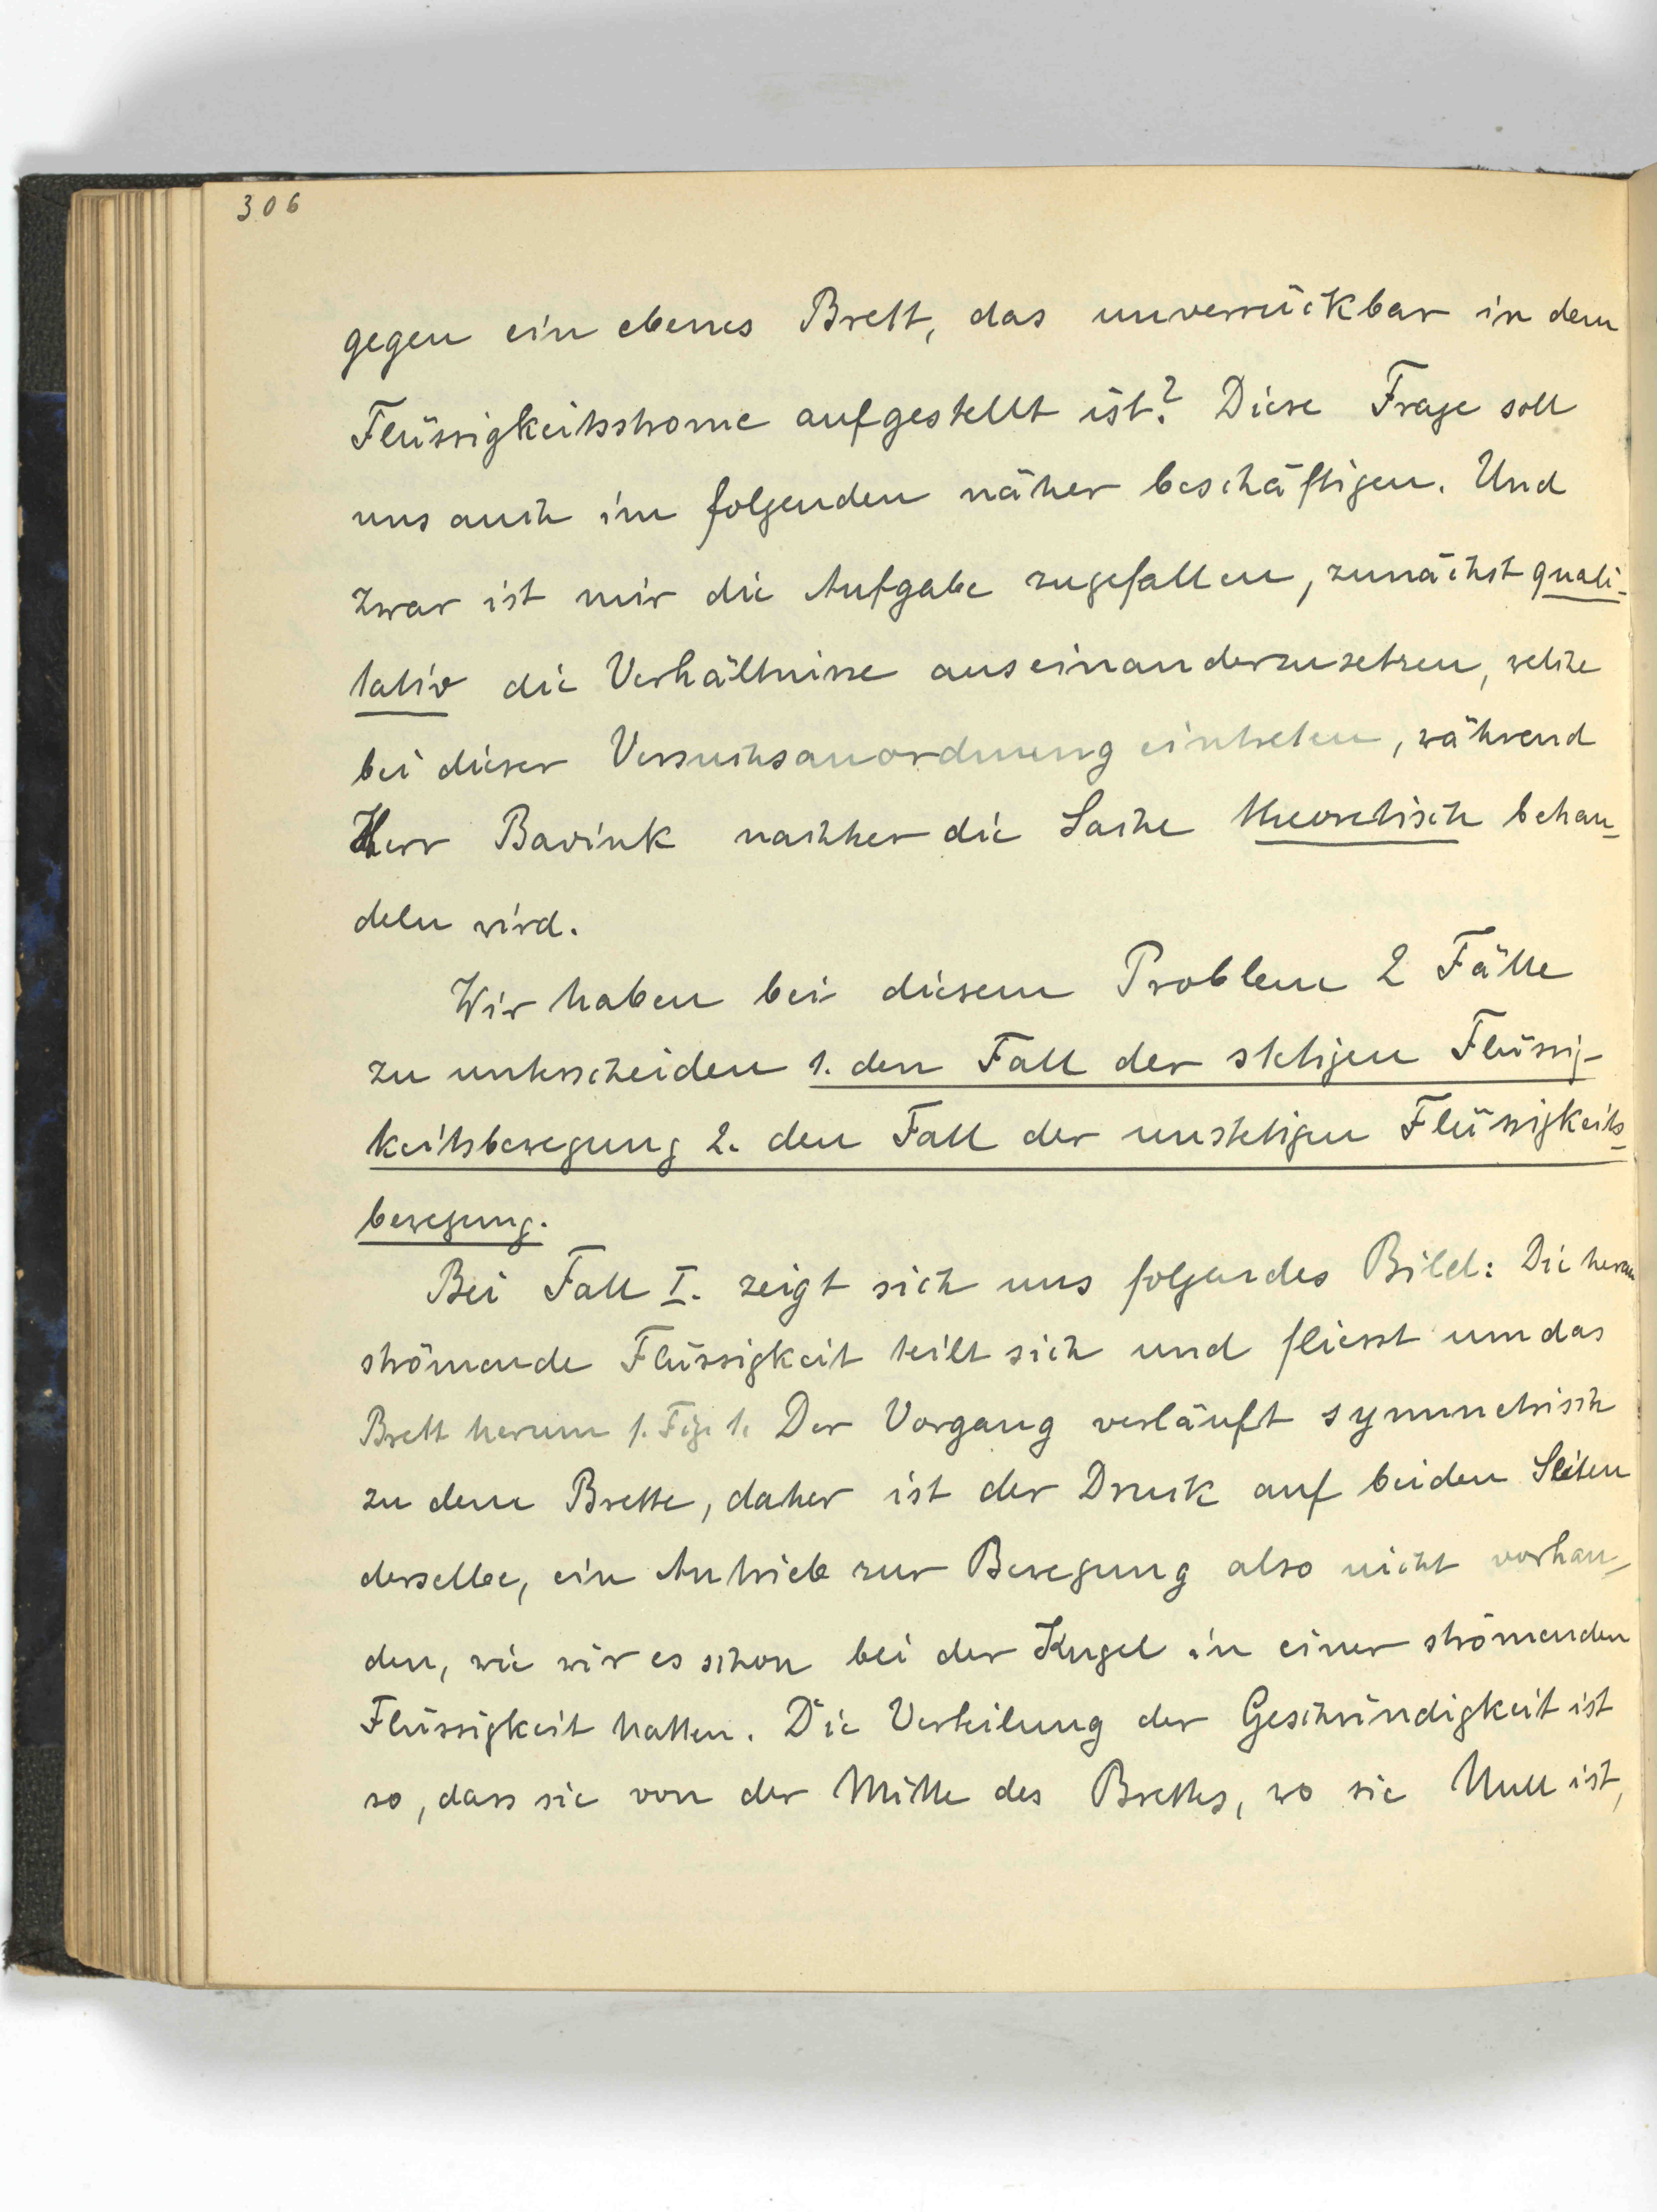 306
gegen ein ebenes Brett, das unverrückbar in dem
Flüssigkeitsstrome aufgestellt ist? Diese Frage soll
uns auch im folgenden näher beschäftigen. Und
zwar ist mir die Aufgabe zugefallen, zunächst quali-
tativ die Verhältnisse auseinanderzusetzen, welche
bei dieser Versuchsanordnung eintreten, während
Herr Bavink nachher die Sache theoretisch behan-
deln wird.
Wir haben bei diesem Problem 2 Fälle
zu unterscheiden 1. den Fall der stetigen Flüssig-
keitsbewegung 2. den Fall der unstetigen Flüssigkeits-
bewegung.
Bei Fall I. zeigt sich uns folgendes Bild: Die heran
strömende Flüssigkeit teilt sich und fliesst um das
Brett herum s. Fig. 1. Der Vorgang verläuft symmetrisch
zu dem Brette, daher ist der Druck auf beiden Seiten
derselbe, ein Antrieb zur Bewegung also nicht vorhan-
den, wie wir es schon bei der Kugel in einer strömenden
Flüssigkeit hatten. Die Verteilung der Geschwindigkeit ist
so, dass sie von der Mitte des Brettes, wo sie Null ist,